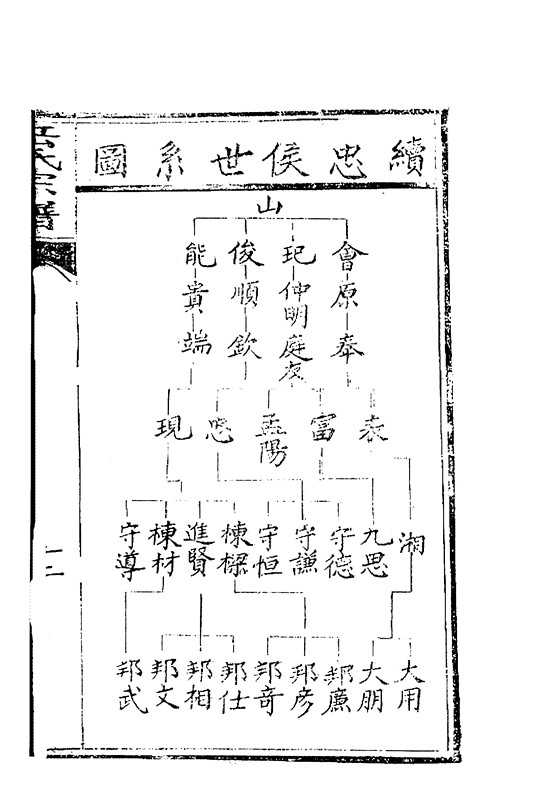 續忠侯世系圖
山
會 玘 俊 能
原 仲明 順 貴
奉 庭 欽 端
表 富 孟陽 忠 現
湘 九思 守德 守謙 守恒 棟樑 進賢 棟材 守導
大用 大朋 邦廉 邦彦 邦奇 邦仕 邦相 邦文 邦武
氏宗譜
十二